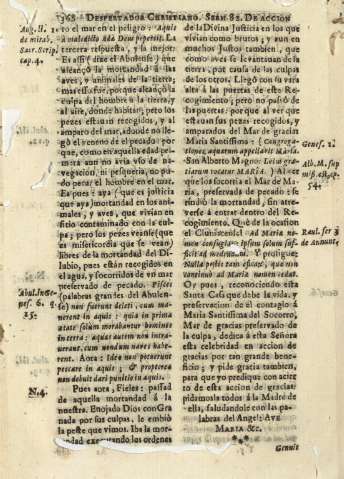 368 DESPERTADOR CHRISTIANO. SERM. 82. DE ACCION
Aug. li. 1.
de mirab.
Sacr. Scrip.
cap. 4.
ro el mar en el peligro: Aquis
à maledicto adeo Deus pepercit. La
tercera respuesta, y la mejor:
Es assi (dize el Abulense) que
alcançò la mortandad à las
aves, y animales de la tierra;
mas esso fue, porque alcançò la
culpa del hombre à la tierra, y
al aire, donde habitan; pero los
pezes estavan recogidos, y al
amparo del mar, adonde no lle-
gò el veneno de pecado: por
que, como en aquella edad pri-
mitiva aun no avia vso de na-
vegacion, ni pesqueria, no pu-
do pecar el hombre en el mar.
Es pues: aya (fue) es justicia
que aya mortandad en los ani-
males, y aves, que vivian en
sitio contaminado con la cul-
pa; pero los pezes veanse (que
es misericordia que se vean)
libres de la mortandad del Di-
luvio, pues estàn recogidos en
el agua, y socorridos de vn mar
preservado de pecado. Pisces
(palabras grandes del Abulen-
se) non fuerunt deleti: cum non
manerent in aquis: quia in prima
aetate solum morabantur homines
in terra: aquas autem non intra-
verant, cum nondum naves habe-
rent. Aora: Ideo non potuerunt
peccare in aquis; & propterea
non debuit dari punitio in aquis.
Abul. in Ge-
nes. 6. q.
25.
N. 4.
Pues aora, Fieles: passad
de aquella mortandad à la
nuestra. Enojado Dios con Gra
nada por sus culpas, le embiò
la peste que vimos. Iba la mor-
tandad executando los ordenes
de la Divina Justicia en los que
vivian como brutos, y aun en
muchos Justos tambien, que
como aves se levantavan de la
tierra, por causa de las culpas
de los otros. Llegò con su vara
alta à las puertas de este Reco-
gimiento; pero no passò de
las puertas: porque al ver que
estavan sus pezas recogidos, y
amparados del Mar de gracias
Maria Santissima: Congrega-
tiones aquarum appellavit Maria.
San Alberto Magno: Locus gra-
tiarum vocatur MARIA.) Al ver
que los socorria el Mar de Ma-
ria, preservada de pecado: se
rindiò la mortandad, sin atre-
verse à entrar dentro del Re-
cogimiento. O, què de la ocasion
el Cluniacense! ad Maria nomen
confugisse ipsum solum suf-
ficit ad medicinam. Y prosigue:
Nulla pestis tam efficax, quae non
continuo ad Maria nomen cedat.
O! pues, reconociendo esta
Santa Casa que debe la vida, y
preservacion de el contagio à
Maria Santissima del Socorro,
Mar de gracias preservado de
la culpa, dedica à esta Señora
esta celebridad en accion de
gracias por tan grande benefi-
cio; y pide gracia tambien,
para que yo predique con acier
to de esta accion de gracias:
pidamosla todos à la Madre de
ella, saludandole con las pa-
labras del Angel: AVE
MARIA &c.
Genes. 1.
Alb. M. sup
miss. est, q.
54.
Raul. ser. 3
de Annunt.
Genuit